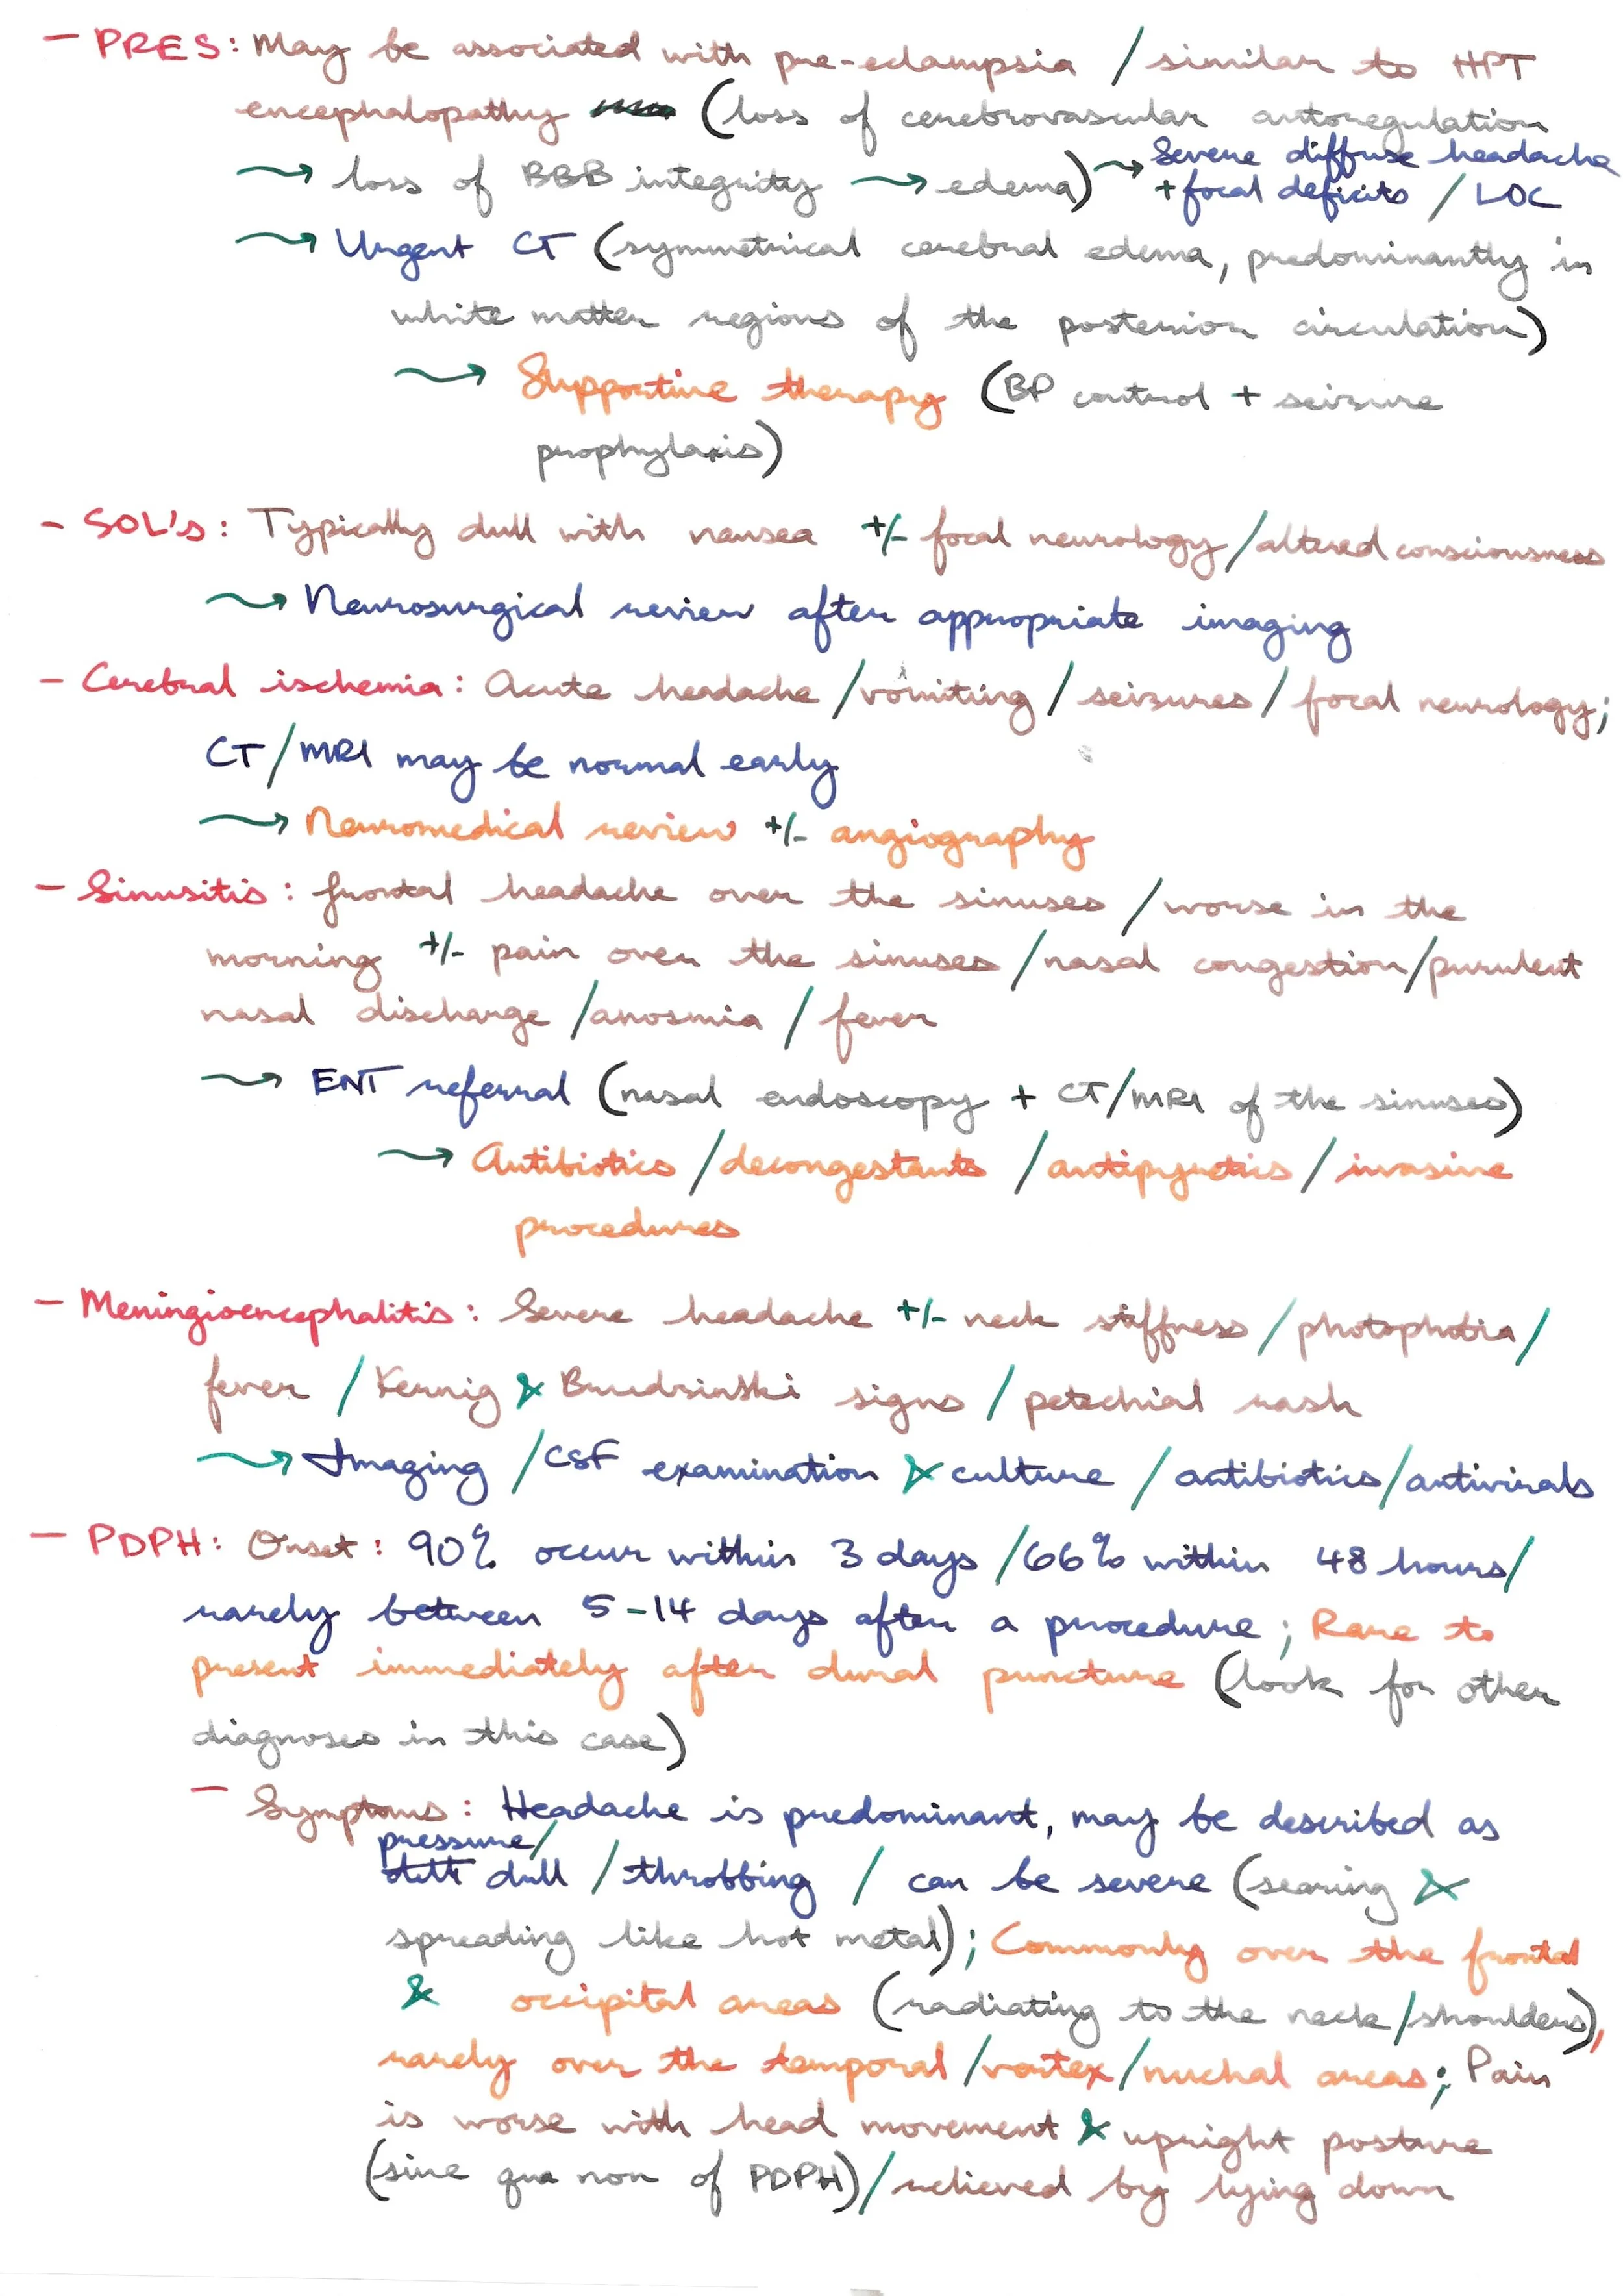 - PRES: May be associated with pre-eclampsia / similar to HPT
encephalopathy (loss of cerebrovascular autoregulation
→ loss of BBB integrity → edema) → Severe diffuse headache
+ focal deficits / LOC
→ Urgent CT (symmetrical cerebral edema, predominantly in
white matter regions of the posterior circulation)
→ Supportive therapy (BP control + seizure
prophylaxis)
- SOL's: Typically dull with nausea +/- focal neurology/altered consciousness
→ Neurosurgical review after appropriate imaging
- Cerebral ischemia: Acute headache /vomiting / seizures / focal neurology;
CT/MRI may be normal early
→ Neuromedical review +/- angiography
- Sinusitis: frontal headache over the sinuses /worse in the
morning +/- pain over the sinuses /nasal congestion/purulent
nasal discharge /anosmia / fever
→ ENT referral (nasal endoscopy + CT/MRI of the sinuses)
→ Antibiotics /decongestants /antipyretics / invasive
procedures
- Meningioencephalitis: Severe headache +/- neck stiffness /photophobia/
fever / Kernig & Brudzinski signs / petechial rash
→ Imaging /CSF examination & culture / antibiotics/antivirals
- PDPH: Onset: 90% occur within 3 days /66% within 48 hours/
rarely between 5-14 days after a procedure; Rare to
present immediately after dural puncture (look for other
diagnoses in this case)
- Symptoms: Headache is predominant, may be described as
pressure/
dull /throbbing / can be severe (searing &
spreading like hot metal); Commonly over the frontal
& occipital areas (radiating to the neck/shoulders),
rarely over the temporal/vortex/nuchal areas; Pain
is worse with head movement & upright posture
(sine qua non of PDPH)/relieved by lying down